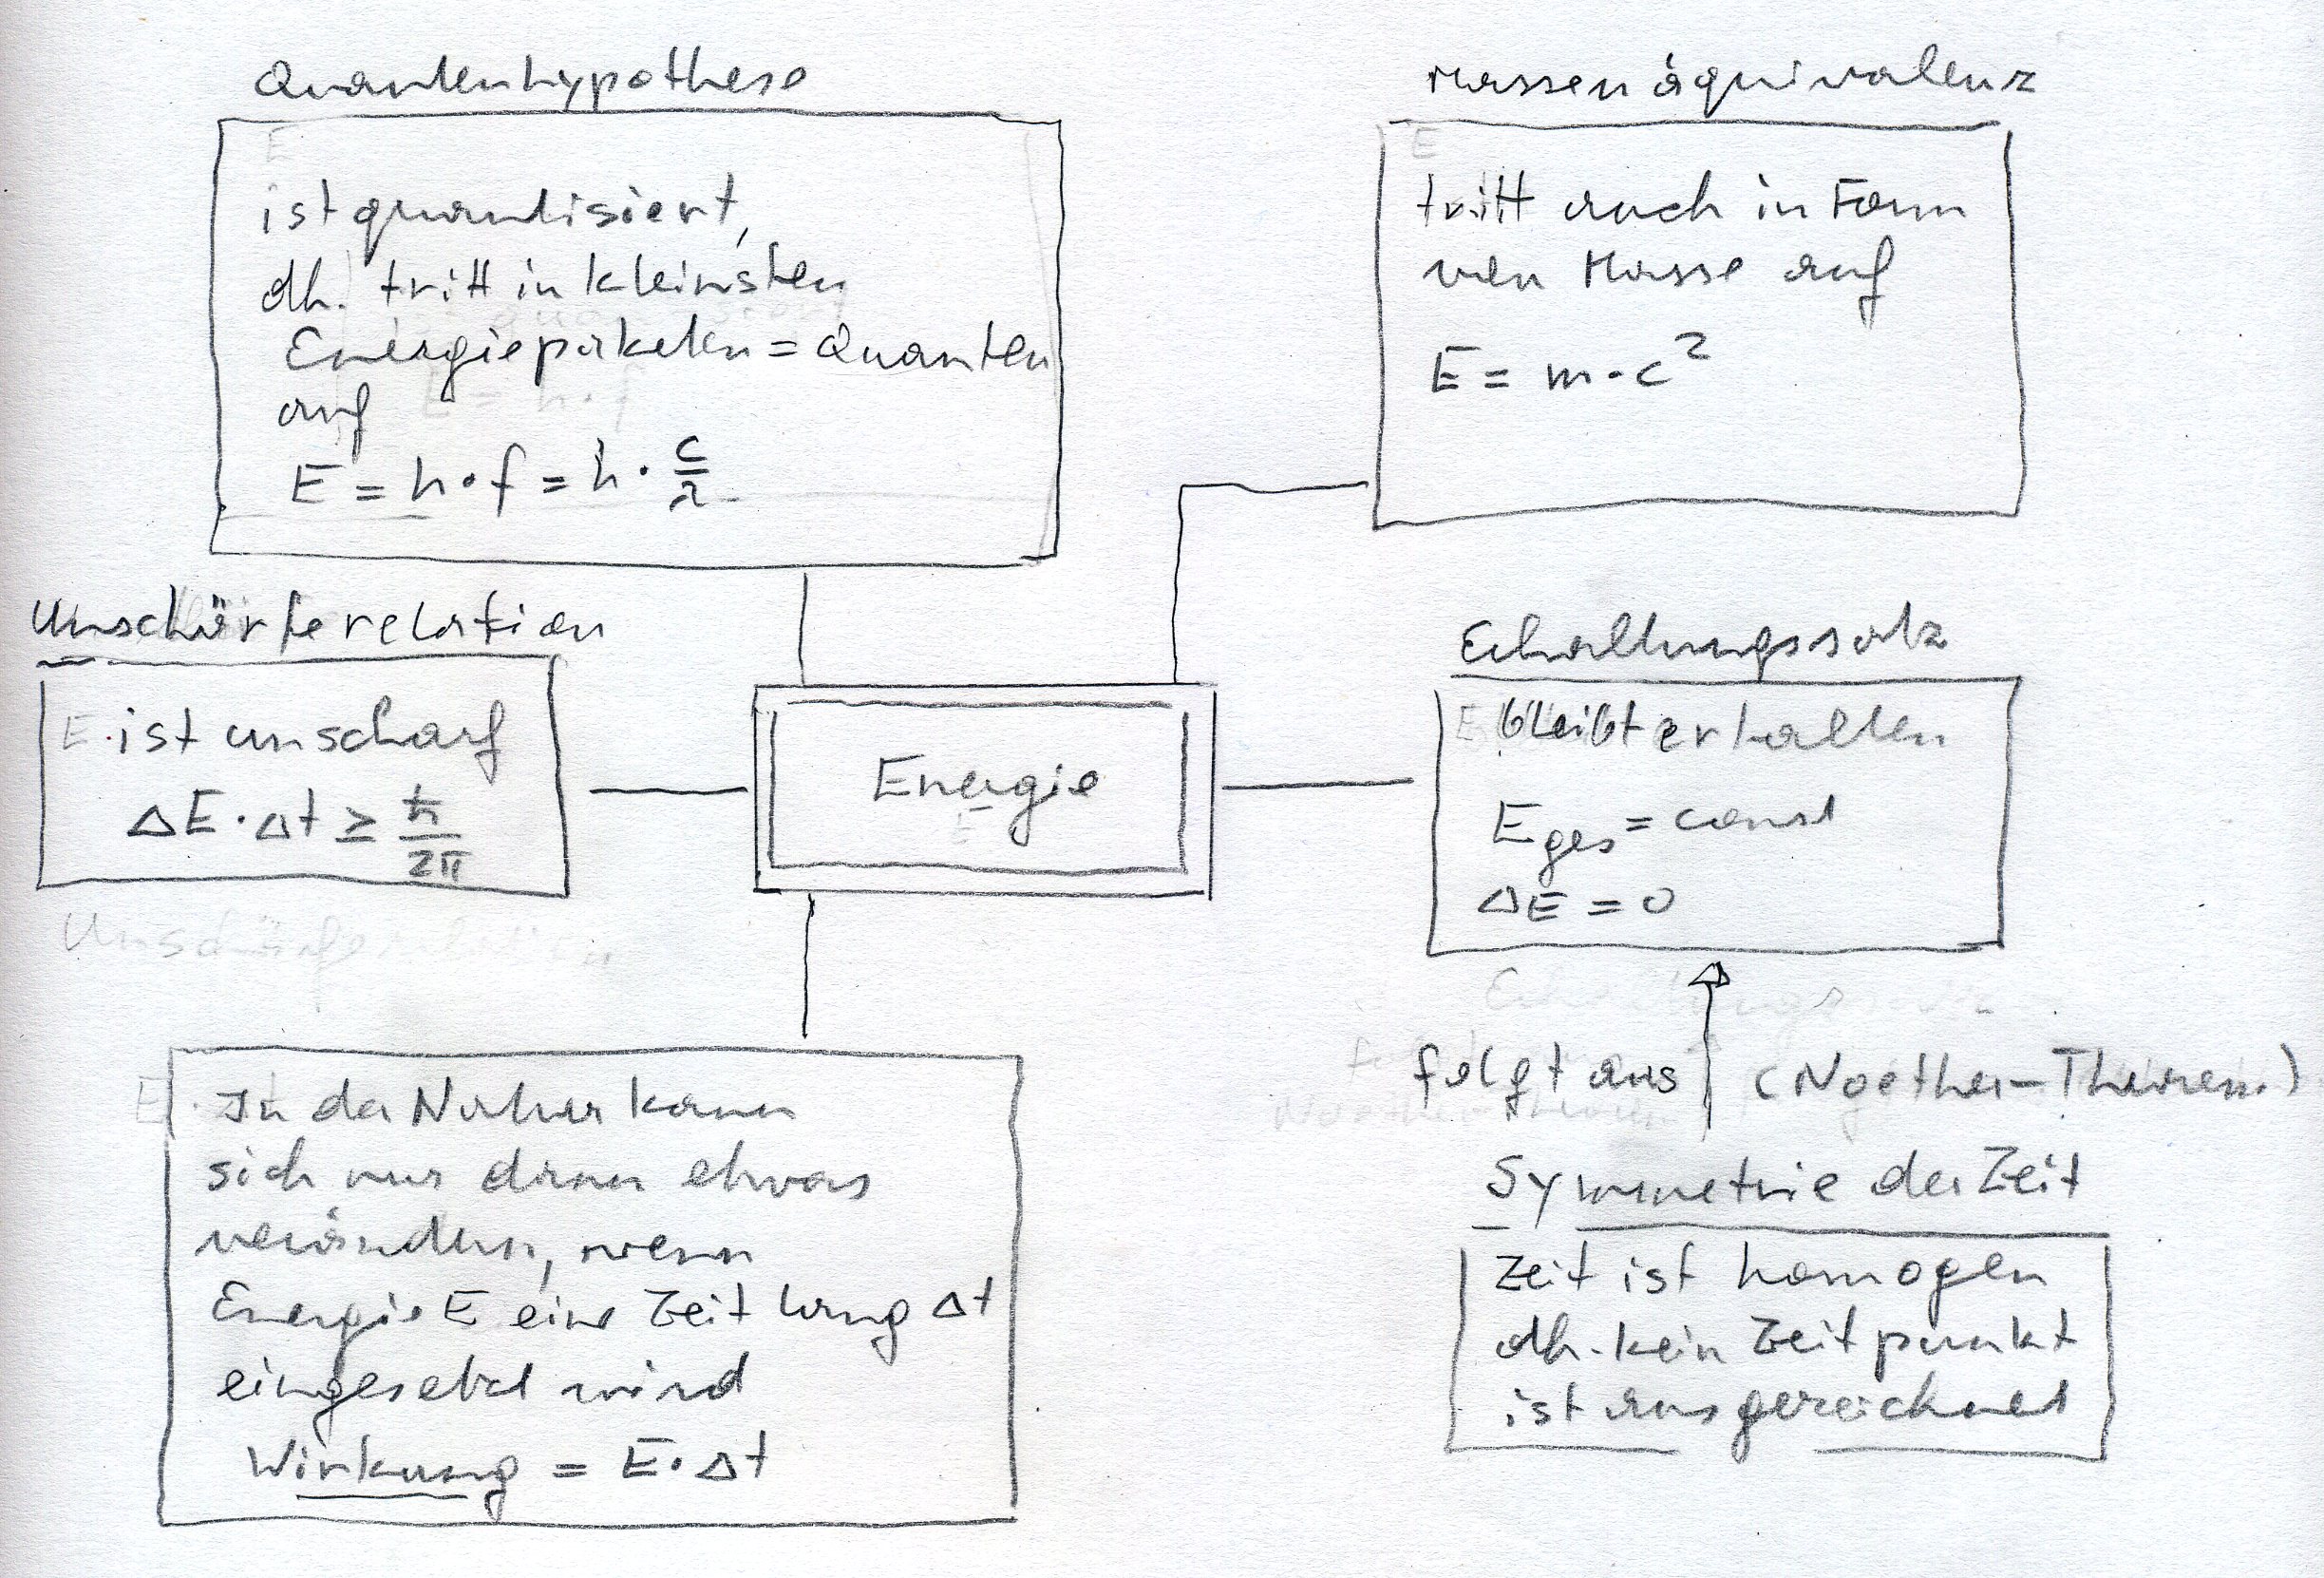 Quantenhypothese
E
ist quantisiert,
dh. tritt in kleinsten
Energiepaketen = Quanten
auf
E = h·f = h·c/λ
Massenäquivalenz
E
tritt auch in Form
von Masse auf
E = m·c²
Unschärferelation
E ist unscharf
ΔE·Δt ≥ ħ/2π
Energie
E
Erhaltungssatz
E bleibt erhalten
E ges = const
ΔE = 0
folgt aus (Noether-Theorem)
Symmetrie der Zeit
Zeit ist homogen
dh. kein Zeitpunkt
ist ausgezeichnet
In der Natur kann
sich nur dann etwas
verändern, wenn
Energie E eine Zeit lang Δt
eingesetzt wird
Wirkung = E·Δt